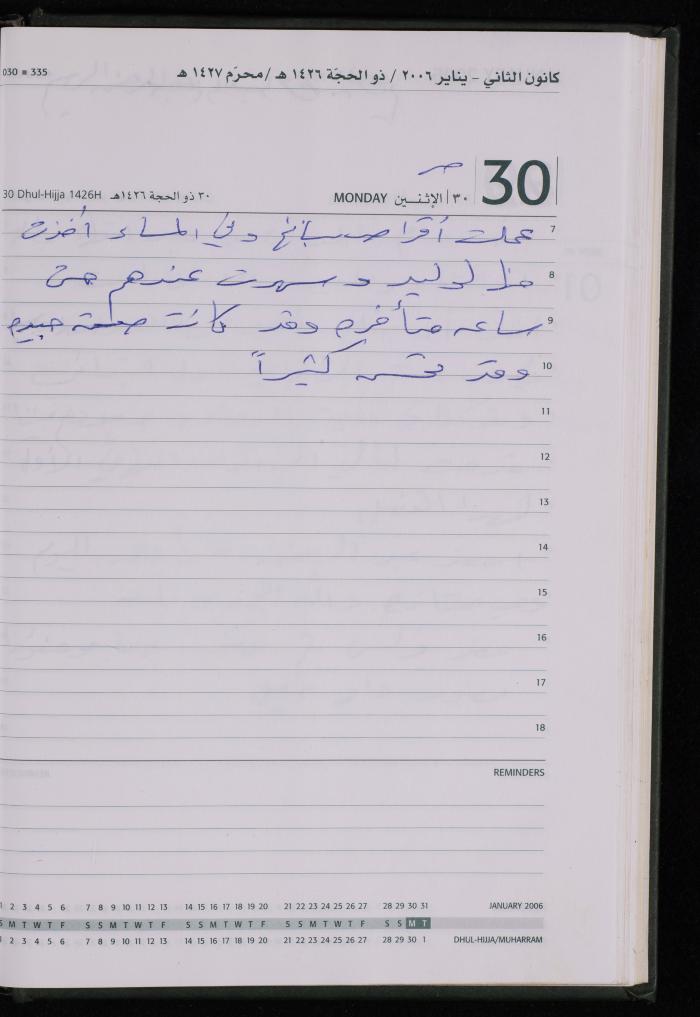 كانون الثاني – يناير ٢٠٠٦ / ذو الحجّة ١٤٢٦ هـ /محرّم ١٤٢٧ هـ
030 ■ 335
30
MONDAY الإثنـين ٣٠
30 Dhul-Hijja 1426H ٣٠ ذو الحجة ١٤٢٦هـ
7 عملت أقراص سبانخ وفي المساء أخذت
8 لوليد وسهرت عندهم حتى
9 ساعه متأخره وقد كانت جيده
10 وقد كثيراً
11
12
13
14
15
16
17
18
REMINDERS
1 2 3 4 5 6 7 8 9 10 11 12 13 14 15 16 17 18 19 20 21 22 23 24 25 26 27 28 29 30 31 JANUARY 2006
S M T W T F S S M T W T F S S M T W T F S S M T W T F S S M T
1 2 3 4 5 6 7 8 9 10 11 12 13 14 15 16 17 18 19 20 21 22 23 24 25 26 27 28 29 30 1 DHUL-HIJJA/MUHARRAM